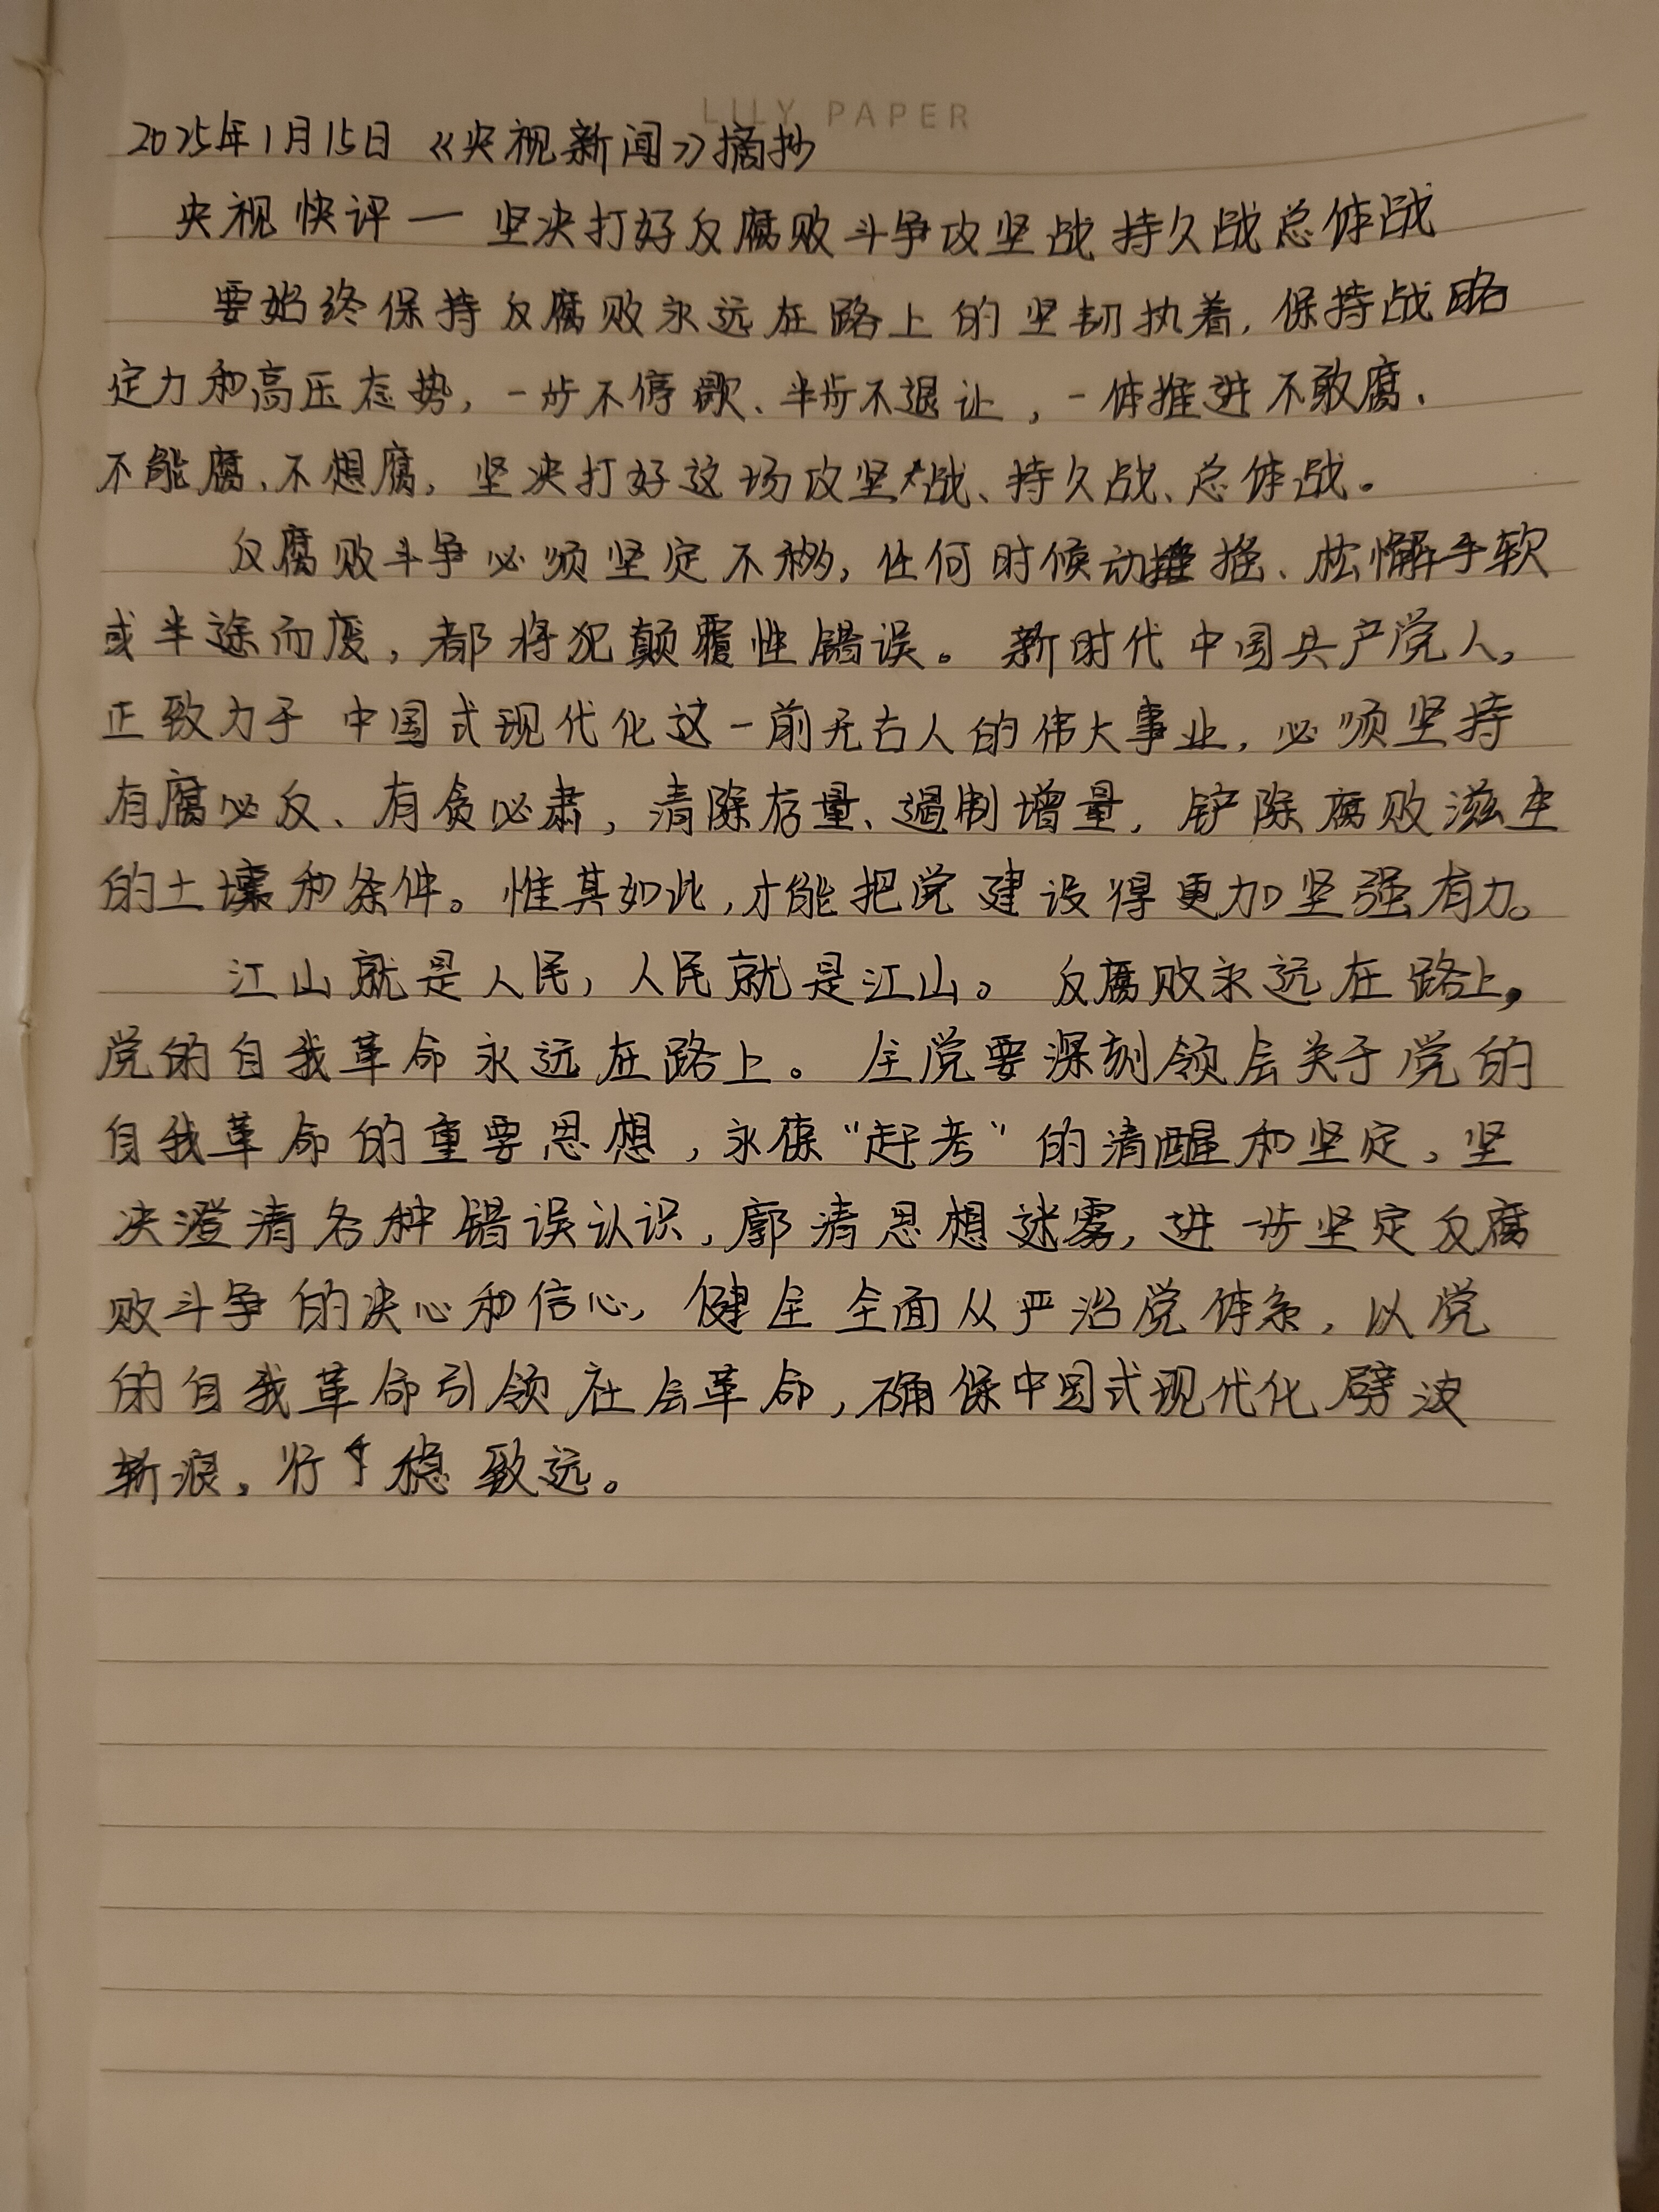 LILY PAPER
2025年1月15日《央视新闻》摘抄
央视快评一坚决打好反腐败斗争攻坚战持久战总体战
要始终保持反腐败永远在路上的坚韧执着,保持战略
定力和高压态势,一步不停歇、半步不退让,一体推进不敢腐、
不能腐、不想腐,坚决打好这场攻坚战、持久战、总体战。
反腐败斗争必须坚定不移,任何时候动摇、松懈手软
或半途而废,都将犯颠覆性错误。新时代中国共产党人,
正致力于中国式现代化这一前无古人的伟大事业,必须坚持
有腐必反、有贪必肃,清除存量、遏制增量,铲除腐败滋生
的土壤和条件。惟其如此,才能把党建设得更加坚强有力。
江山就是人民,人民就是江山。反腐败永远在路上,
党的自我革命永远在路上。全党要深刻领会关于党的
自我革命的重要思想,永葆“赶考”的清醒和坚定,坚
决澄清各种错误认识,廓清思想迷雾,进一步坚定反腐
败斗争的决心和信心,健全全面从严治党体系,以党
的自我革命引领社会革命,确保中国式现代化劈波
斩浪,行稳致远。